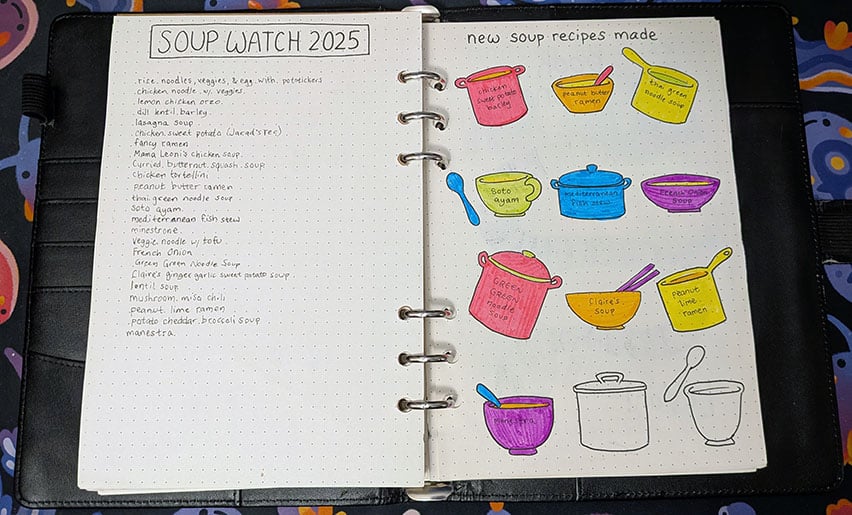 SOUP WATCH 2025
. rice. noodles, veggies, & egg. with. pototickers
. chicken noodle. w/ veggies
. lemon chicken orzo.
. dill lentil. barley.
lasagna soup
. chicken. sweet potato (Jarad's rec)
fancy ramen
. Mama Leoni's chicken soup.
Curried. butternut. squash. soup
chicken tortellini
peanut butter ramen
thai green noodle soup
soto ayam
mediterranean fish stew
minestrone.
Veggie noodle w/ tofu
French Onion
Green Green Noodle Soup
Claire's ginger garlic sweet potato soup
lentil soup
mushroom. miso chili
. peanut. lime ramen
. potato cheddar. broccoli soup
manestra.
new soup recipes made
chicken
sweet potato
barley
peanut butter
ramen
thai green
noodle soup
Soto
ayam
mediterranean
fish stew
French Onion
Soup
GREEN
GREEN
noodle
soup
Claire's
soup
peanut
lime
ramen
manestra